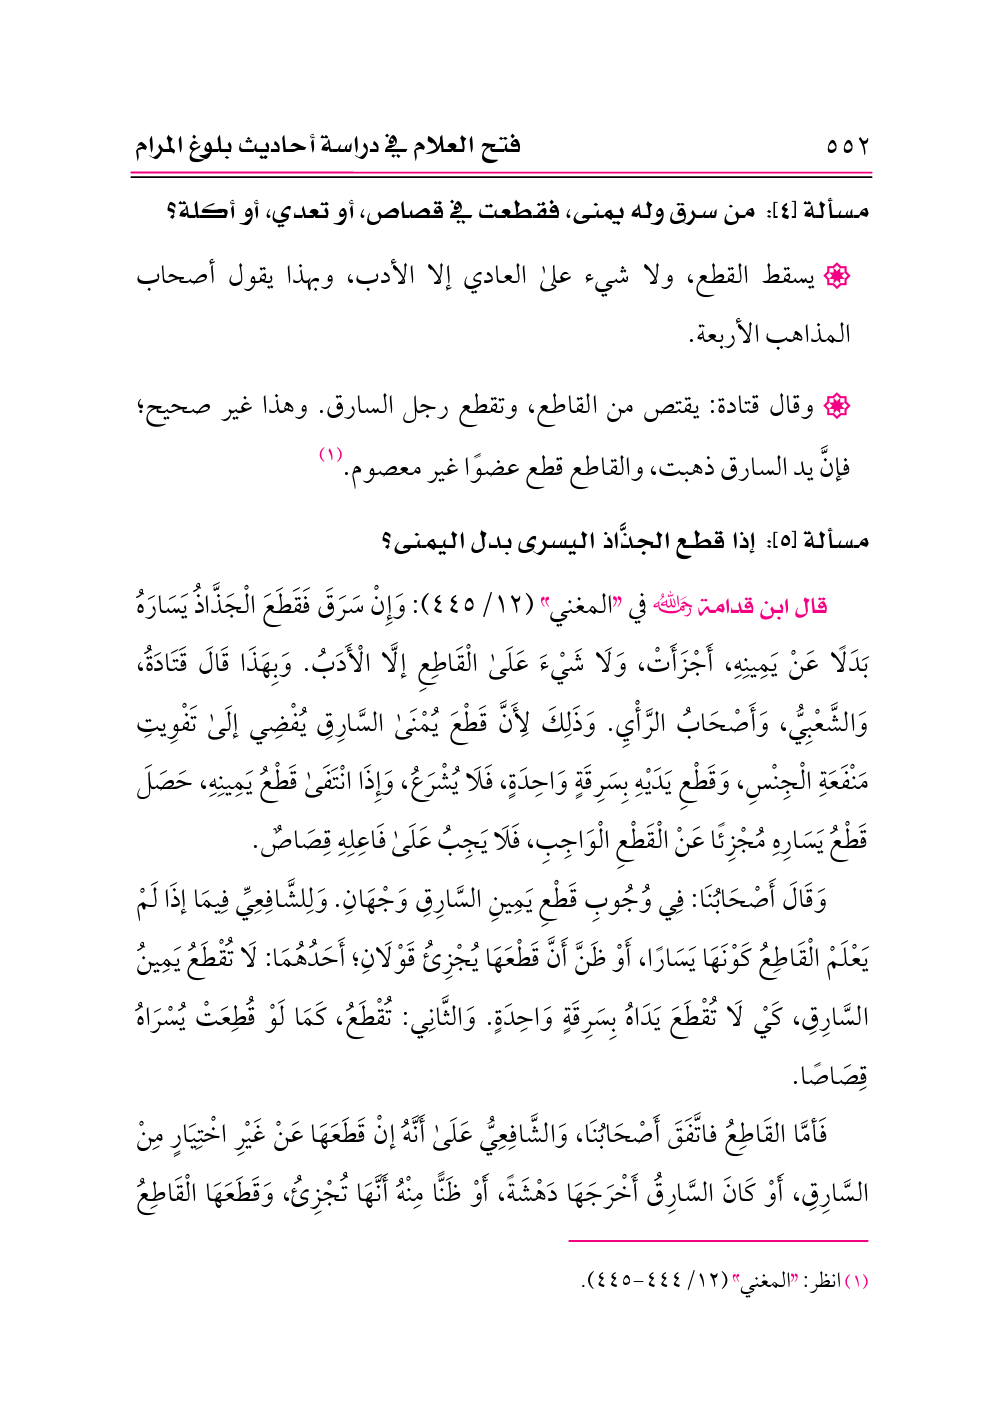 ٥٥٢ فتح العلام في دراسة أحاديث بلوغ المرام
مسألة [٤]: من سرق وله يمنى، فقطعت في قصاص، أو تعدي، أو أكلة؟
يسقط القطع، ولا شيء علىٰ العادي إلا الأدب، وبهذا يقول أصحاب
المذاهب الأربعة.
وقال قتادة: يقتص من القاطع، وتقطع رجل السارق. وهذا غير صحيح؛
فإنَّ يد السارق ذهبت، والقاطع قطع عضوًا غير معصوم.(١)
مسألة [٥]: إذا قطع الجذَّاذ اليسرى بدل اليمنى؟
قال ابن قدامة رَحِمَهُ اللهُ في "المغني" (١٢/ ٤٤٥): وَإِنْ سَرَقَ فَقَطَعَ الْجَذَّاذُ يَسَارَهُ
بَدَلًا عَنْ يَمِينِهِ، أَجْزَأَتْ، وَلَا شَيْءَ عَلَىٰ الْقَاطِعِ إلَّا الْأَدَبُ. وَبِهَذَا قَالَ قَتَادَةُ،
وَالشَّعْبِيُّ، وَأَصْحَابُ الرَّأْيِ. وَذَلِكَ لِأَنَّ قَطْعَ يُمْنَىٰ السَّارِقِ يُفْضِي إلَىٰ تَفْوِيتِ
مَنْفَعَةِ الْجِنْسِ، وَقَطْعِ يَدَيْهِ بِسَرِقَةٍ وَاحِدَةٍ، فَلَا يُشْرَعُ، وَإِذَا انْتَفَىٰ قَطْعُ يَمِينِهِ، حَصَلَ
قَطْعُ يَسَارِهِ مُجْزِئًا عَنْ الْقَطْعِ الْوَاجِبِ، فَلَا يَجِبُ عَلَىٰ فَاعِلِهِ قِصَاصٌ.
وَقَالَ أَصْحَابُنَا: فِي وُجُوبِ قَطْعِ يَمِينِ السَّارِقِ وَجْهَانِ. وَلِلشَّافِعِيِّ فِيمَا إذَا لَمْ
يَعْلَمْ الْقَاطِعُ كَوْنَهَا يَسَارًا، أَوْ ظَنَّ أَنَّ قَطْعَهَا يُجْزِئُ قَوْلَانِ؛ أَحَدُهُمَا: لَا تُقْطَعُ يَمِينُ
السَّارِقِ، كَيْ لَا تُقْطَعَ يَدَاهُ بِسَرِقَةٍ وَاحِدَةٍ. وَالثَّانِي: تُقْطَعُ، كَمَا لَوْ قُطِعَتْ يُسْرَاهُ
قِصَاصًا.
فَأَمَّا القَاطِعُ فاتَّفَقَ أَصْحَابُنَا، وَالشَّافِعِيُّ عَلَىٰ أَنَّهُ إنْ قَطَعَهَا عَنْ غَيْرِ اخْتِيَارٍ مِنْ
السَّارِقِ، أَوْ كَانَ السَّارِقُ أَخْرَجَهَا دَهْشَةً، أَوْ ظَنًّا مِنْهُ أَنَّهَا تُجْزِئُ، وَقَطَعَهَا الْقَاطِعُ
(١) انظر: "المغني" (١٢/ ٤٤٤-٤٤٥).